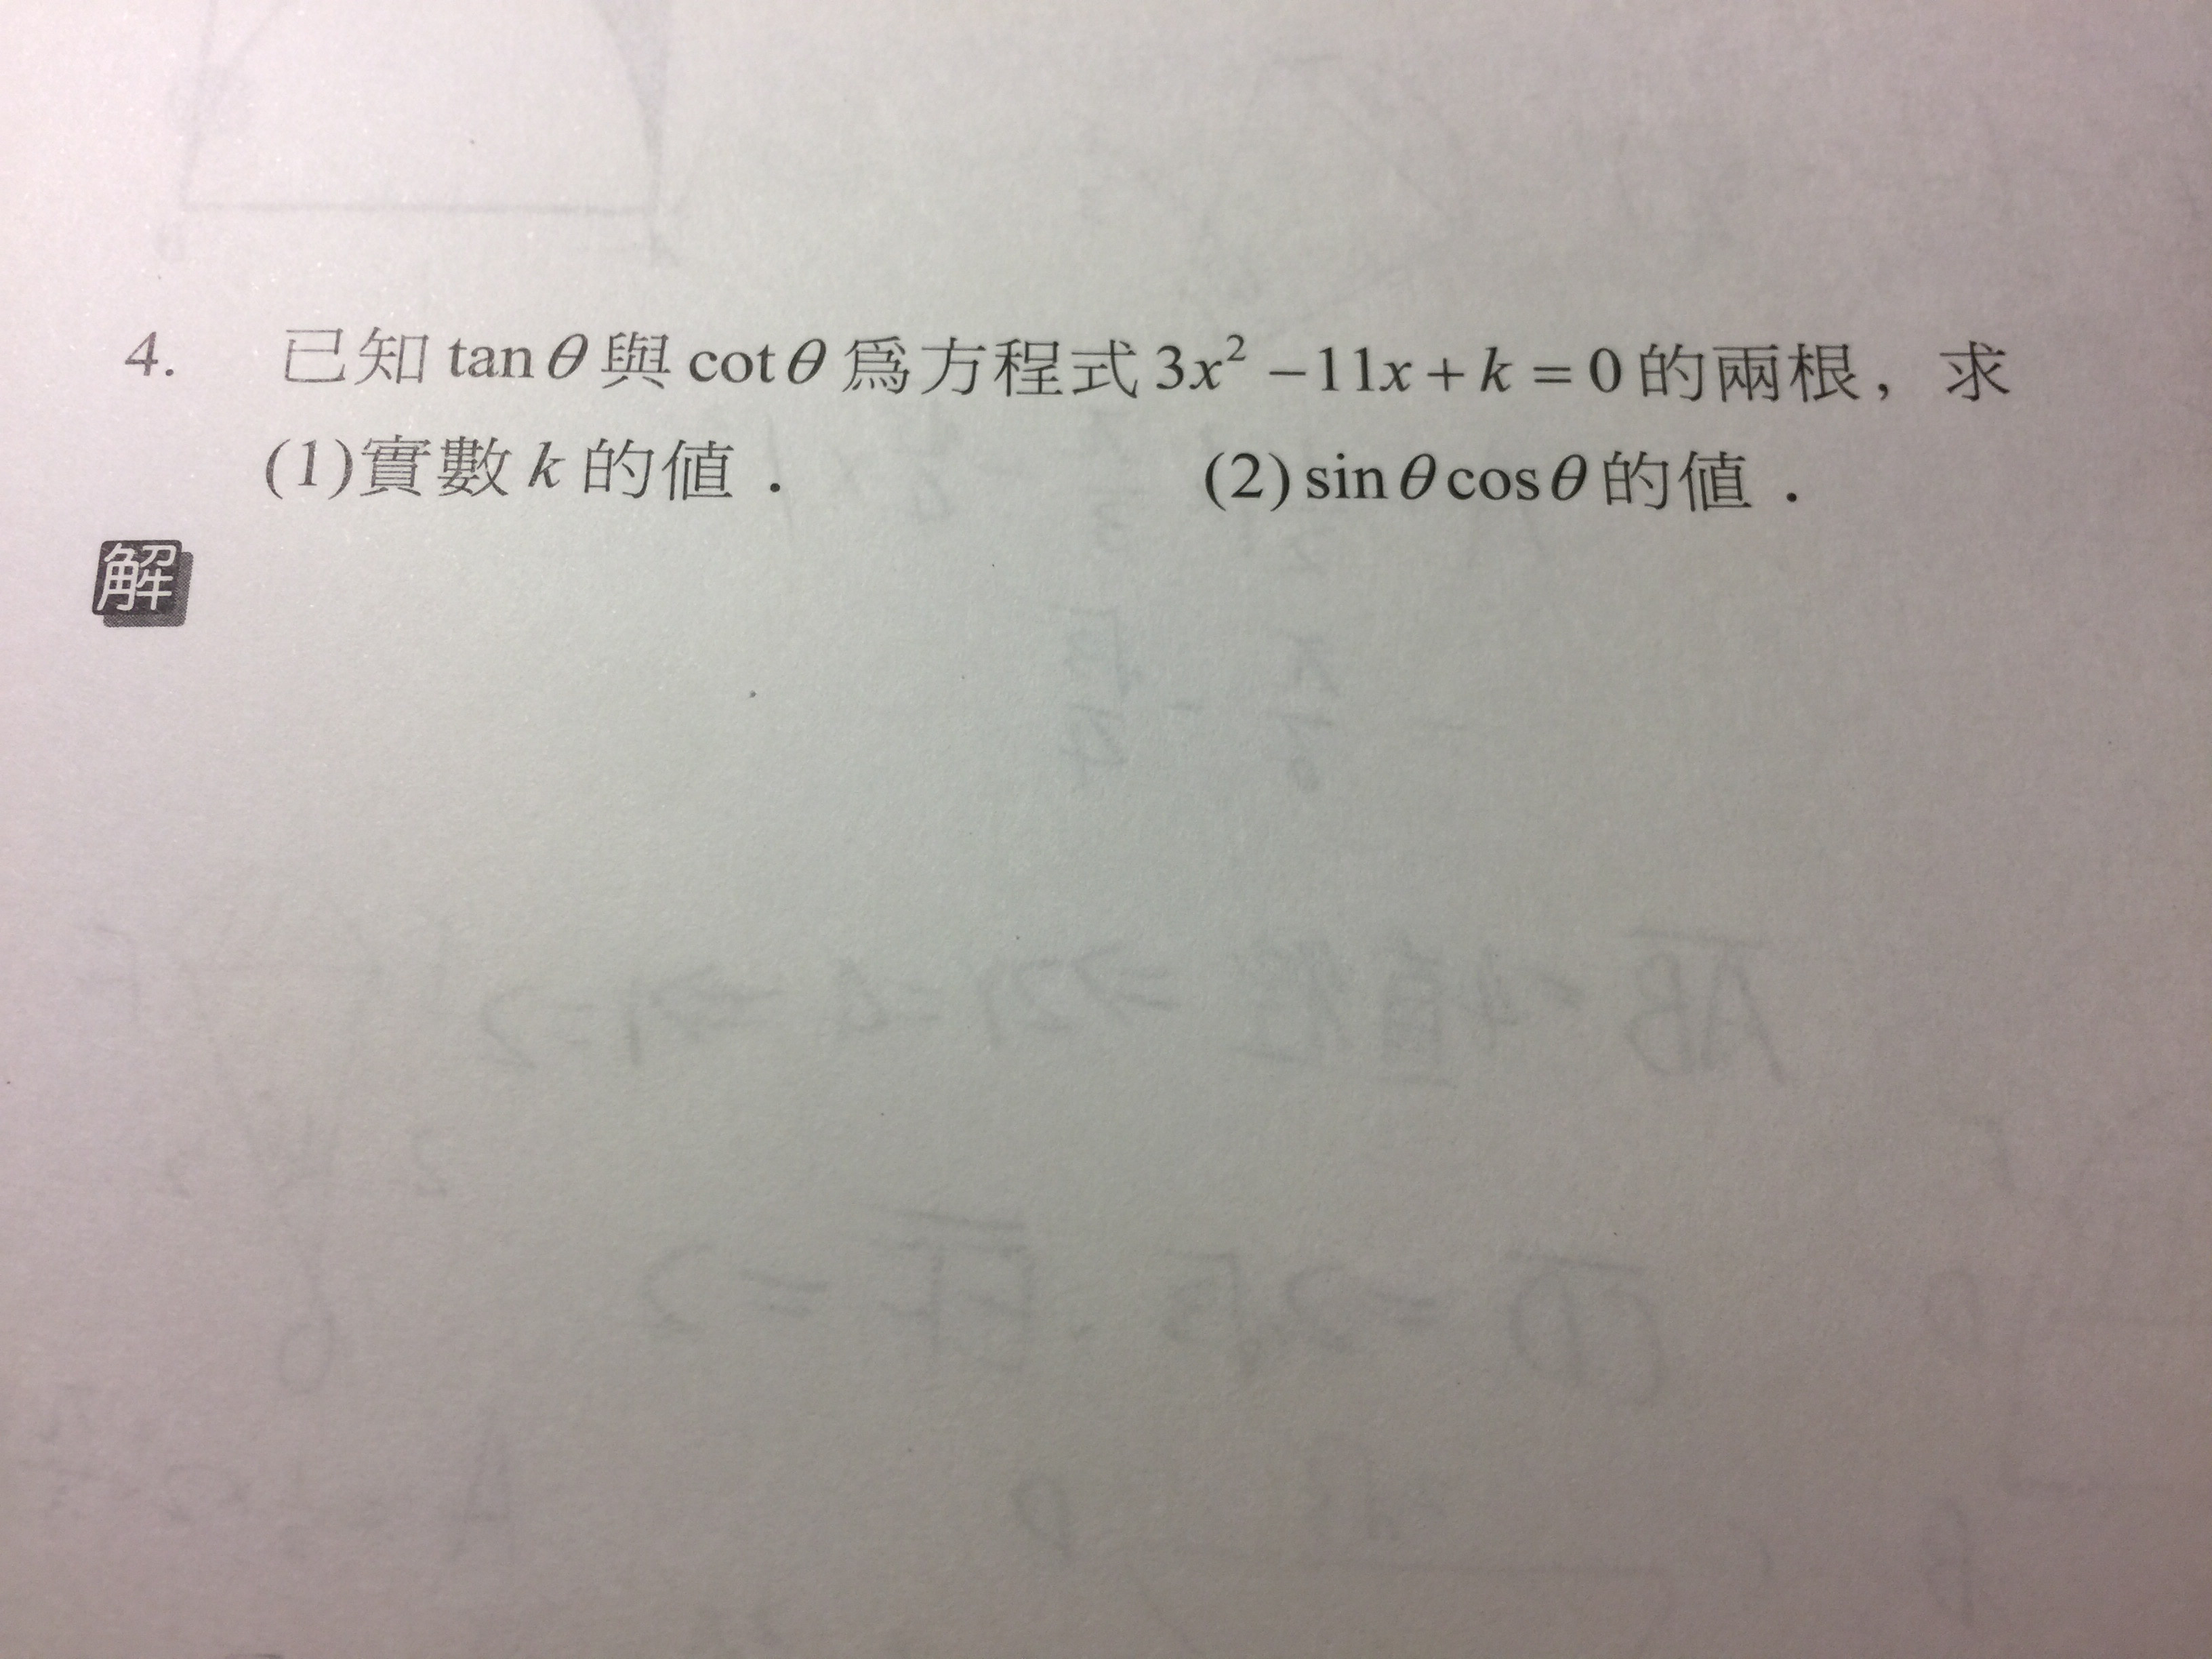 4. 已知 tanθ 與 cotθ 爲方程式 3x² −11x + k = 0 的兩根，求
(1)實數 k 的値． (2) sinθcosθ 的値．
解